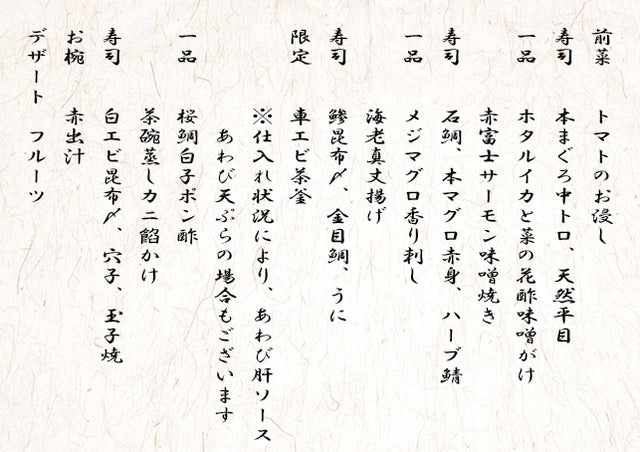 前菜 トマトのお浸し
寿司 本まぐろ中トロ、天然平目
一品 ホタルイカと菜の花酢味噌がけ
赤富士サーモン味噌焼き
寿司 石鯛、本マグロ赤身、ハーブ鯖
一品 メジマグロ香り刺し
海老真丈揚げ
寿司 鯵昆布〆、金目鯛、うに
限定 車エビ茶釜
※仕入れ状況により、あわび肝ソース
あわび天ぷらの場合もございます
一品 桜鯛白子ポン酢
茶碗蒸しカニ餡かけ
寿司 白エビ昆布〆、穴子、玉子焼
お椀 赤出汁
デザート フルーツ